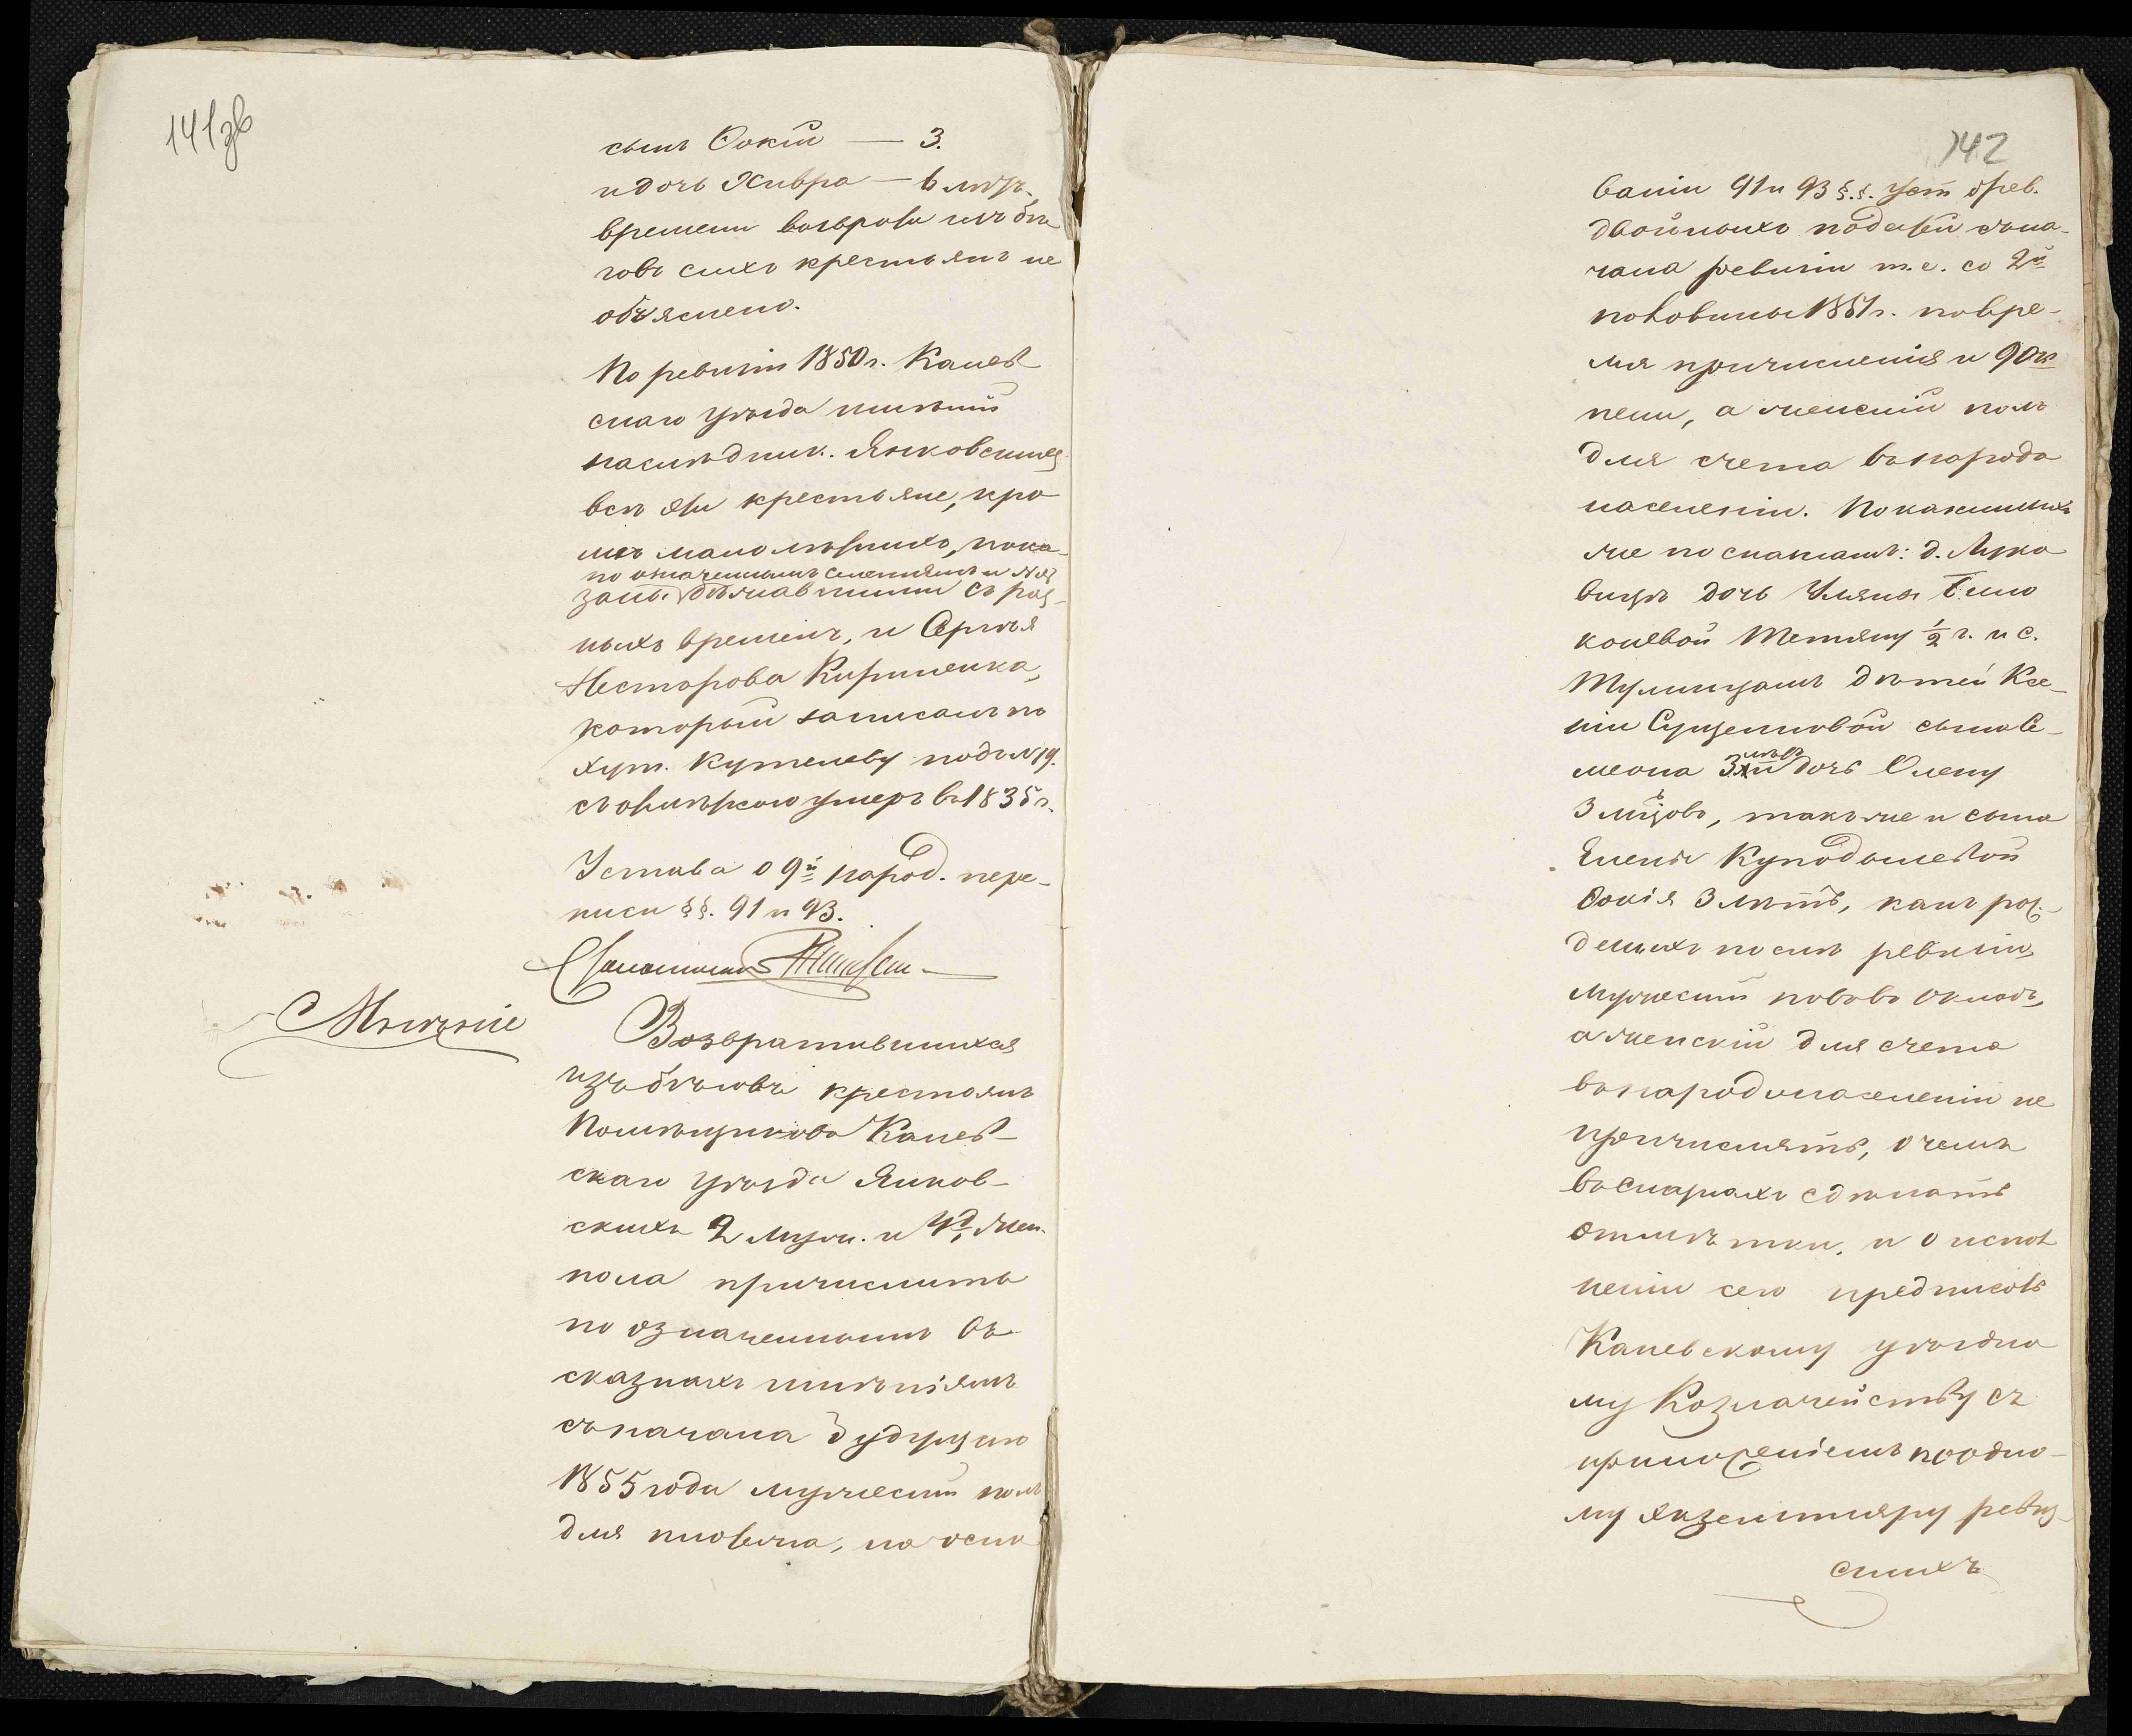 141 зв
сынъ Фокій — 3.
и дочь Хивра — 6 мѣс.
времени возврата изъ бѣ
говъ сихъ крестьянъ не
объяснено.
По ревизіи 1850 г. Канев
скаго уѣзда имѣній
наслѣдник. Янковскихъ
всѣ эти крестьяне, кро
мѣ малолѣтнихъ, пока-
по означеннымъ селеніямъ и №№
заны бѣжавшими съ раз-
ныхъ временъ, и Сергѣя
Несторова Кириленка,
который записанъ по
хут. Кутелеву подъ № 19.
съ отмѣткою умеръ въ 1835 г.
Устава о 9й народ. пере-
писи §§. 91 и 93.
Мнѣніе
Возвратившихся
изъ бѣговъ крестьянъ
Помѣщиковъ Канев-
скаго уѣзда Янков-
скихъ 2 муж. и 4 жен.
пола причислить
по означеннымъ въ
сказкахъ имѣніямъ
съ начала будущаго
1855 года мужескій полъ
для платежа, на осно
142
ваніи 91 и 93 §.§. уст о рев.
двойныхъ податей съ на-
чала ревизіи т. е. со 2й
половины 1851 г. по вре-
мя причисленія и 90 к
пени, а женскій полъ
для счета въ народо
населеніи. Показанныхъ
же по сказкамъ: д. Луко
вицѣ дочь Ульяны
Тетяну ½ г. и с.
Тулинцамъ дѣтей Ксе-
ніи сына Се-
меона 3 лѣтъ дочь Олену
3 мѣсяцовъ, также и сына
Елены
Фокія 3 лѣтъ, какъ рож-
денныхъ послѣ ревизіи,
мужескій полъ въ окладъ,
а женскій для счета
въ народонаселеніи не
причислять, о чемъ
въ сказкахъ сдѣлать
отмѣтки, и о испол
неніи сего предписать
Каневскому уѣздно
му Казначейству съ
приложеніемъ по одно-
му экземпляру ревиз-
скихъ